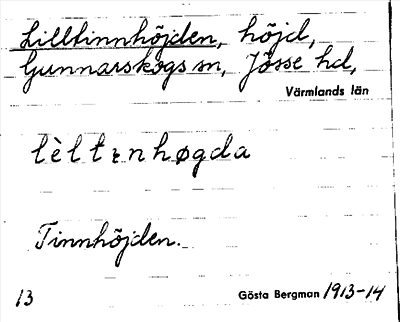 Lilltinnhöjden, höjd,
Gunnarskogs sn, Jösse hd,
Värmlands län
lèltınhøgda
Tinnhöjden.
13 Gösta Bergman 1913-14